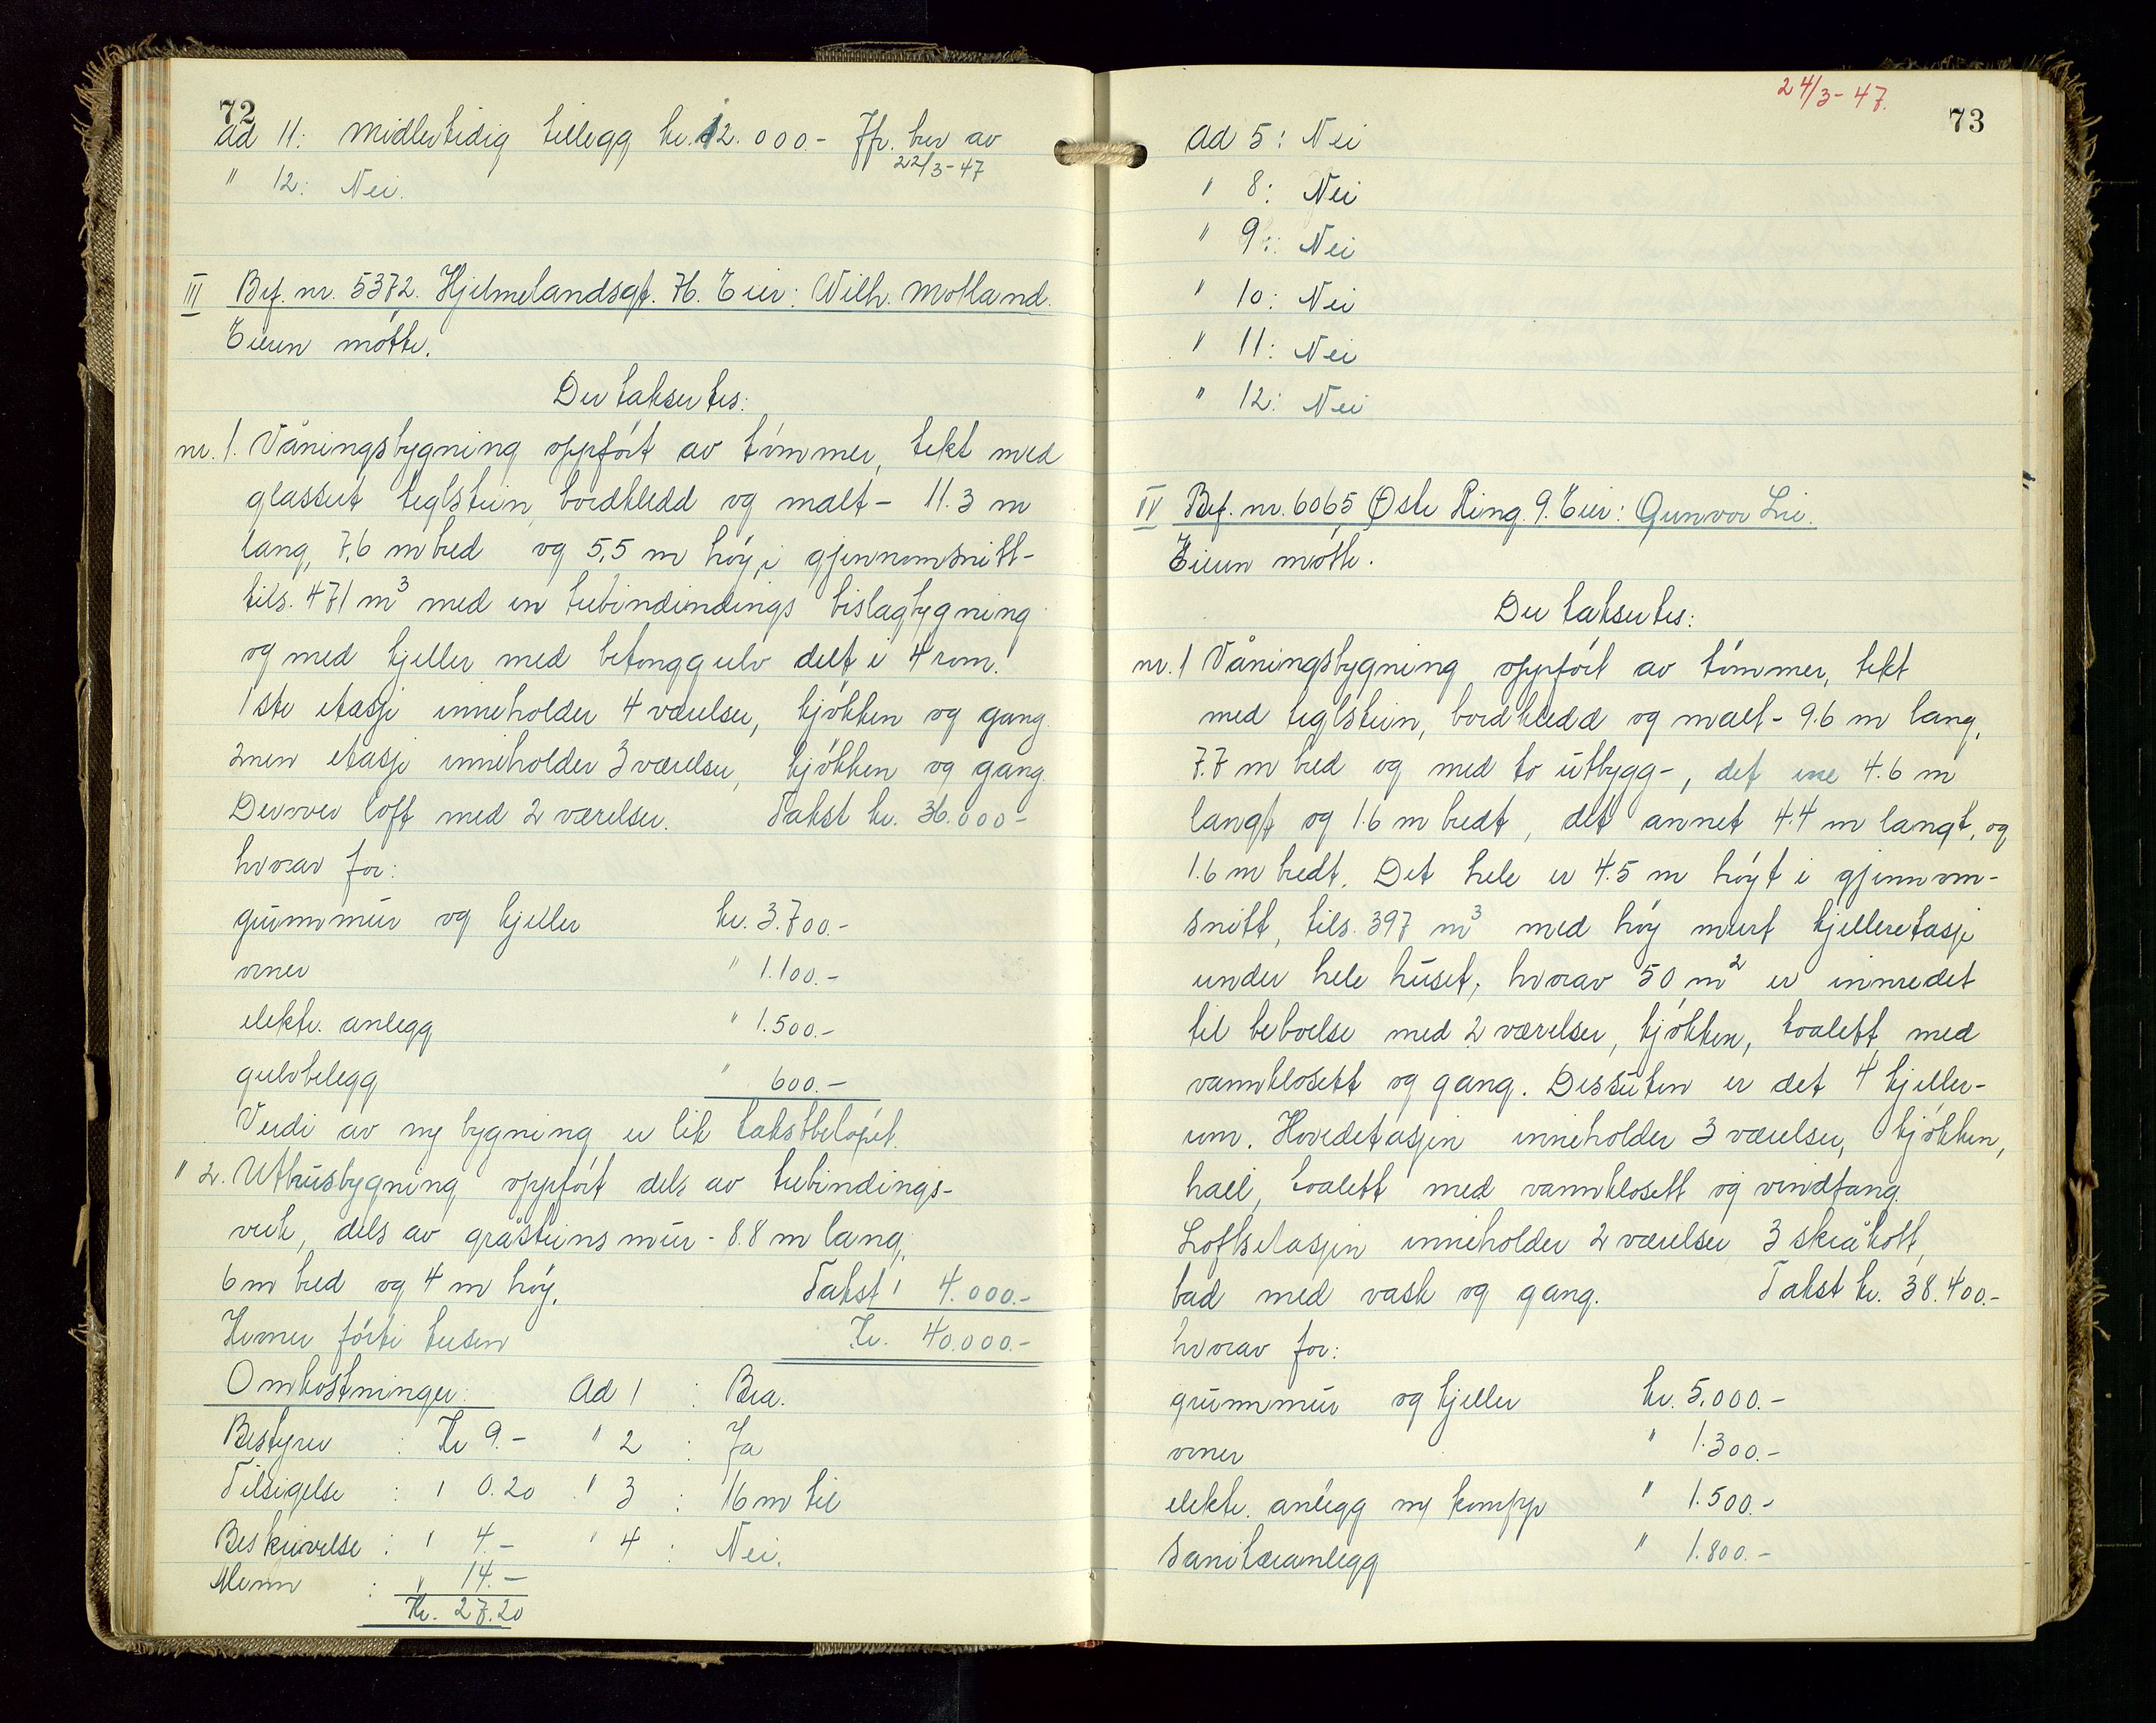 72
Ad 11: Midlertidig tillegg kr. 12.000.- Jfr. brev av
22/3-47
" 12: Nei.
III Brf. nr. 5372. Hjelmelandsgt. 76. Eier: Wilh. Motland.
Eieren møtte.
Der taksertes:
nr. 1. Våningsbygning oppført av tømmer, tekt med
glassert teglstein, bordkledd og malt - 11.3 m
lang, 7,6 m bred og 5,5 m høy i gjennomsnitt -
tils. 471 m³ med en trebindindings bislagbygning
og med kjeller med betonggulv delt i 4 rom.
1ste etasje inneholder 4 værelser, kjøkken og gang.
2nen etasje inneholder 3 værelser, kjøkken og gang.
Derover loft med 2 værelser. Takst kr. 36.000-
hvorav for:
grunnmur og kjeller kr. 3.700.-
ovner " 1.100.-
elektr. anlegg " 1.500.-
gulvbelegg " 600.-
Verdi av ny bygning er lik takstbeløpet.
" 2. Uthusbygning oppført dels av trebindings-
verk, dels av gråsteinsmur - 8.8 m lang,
6 m bred og 4 m høy. Takst " 4.000.-
Kroner førti tusen Kr. 40.000.-
Omkostninger: Ad 1 : Bra.
Bestyrer : Kr 9.- " 2 : Ja
Tilsigelse : " 0.20 " 3 : 16 m til
Beskrivelse : " 4.- " 4 : Nei.
Menn : " 14.-
Kr. 27.20
24/3-47.
73
Ad 5: Nei
" 8: Nei
" 9: Nei
" 10: Nei
" 11: Nei
" 12: Nei
IV Brf. nr. 6065 Østre Ring 9. Eier: Gunvor Lie.
Eieren møtte.
Der taksertes:
nr. 1 Våningsbygning oppført av tømmer, tekt
med teglstein, bordkledd og malt - 9.6 m lang,
7.7 m bred og med to utbygg -, det ene 4.6 m
langt og 1.6 m bredt, det annet 4.4 m langt, og
1.6 m bredt. Det hele er 4.5 m høyt i gjennom-
snitt, tils. 397 m³ med høy murt kjelleretasje
under hele huset, hvorav 50 m² er innredet
til beboelse med 2 værelser, kjøkken, toalett med
vannklosett og gang. Dessuten er det 4 kjeller-
rom. Hovedetasjen inneholder 3 værelser, kjøkken,
hall, toalett med vannklosett og vindfang.
Loftsetasjen inneholder 2 værelser 3 skråkott,
bad med vask og gang. Takst kr. 38.400.-
hvorav for:
grunnmur og kjeller kr. 5.000.-
ovner " 1.300.-
elektr. anlegg og komfyr " 1.500.-
Sanitæranlegg " 1.800.-